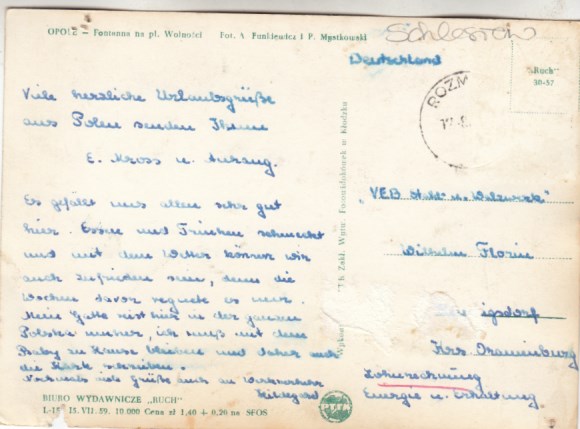 OPOLE – Fontanna na pl. Wolności Fot. A. Funkiewicz i P. Mystkowski
Schlesien
Deutschland
"Ruch"
30-57
ROZM
Viele herzliche Urlaubsgrüße
aus Polen senden Ihnen
E. Kross u. Anhang.
Es gefällt uns allen sehr gut
hier. Essen und Trinken schmeckt
und mit dem Wetter können wir
auch zufrieden sein, denn die
Wochen davor regnete es nur.
Mein Gatte reist hier in der ganzen
Polska umher, ich muß mit dem
Baby zu Hause bleiben und daher auch
die Karte schreiben.
Nochmals viele Grüße auch an
Hildegard
"VEB Stahl- u. Walzwerk"
Wilhelm Florin
igsdorf
Krs. Oranienburg
Lohnrechnung
Energie u. Erhaltung.
Zakł. Wytw. Fotowidokówek w Kłodzku
BIURO WYDAWNICZE "RUCH"
15. VII. 59. 10.000 Cena zł 1,40 + 0,20 na SFOS